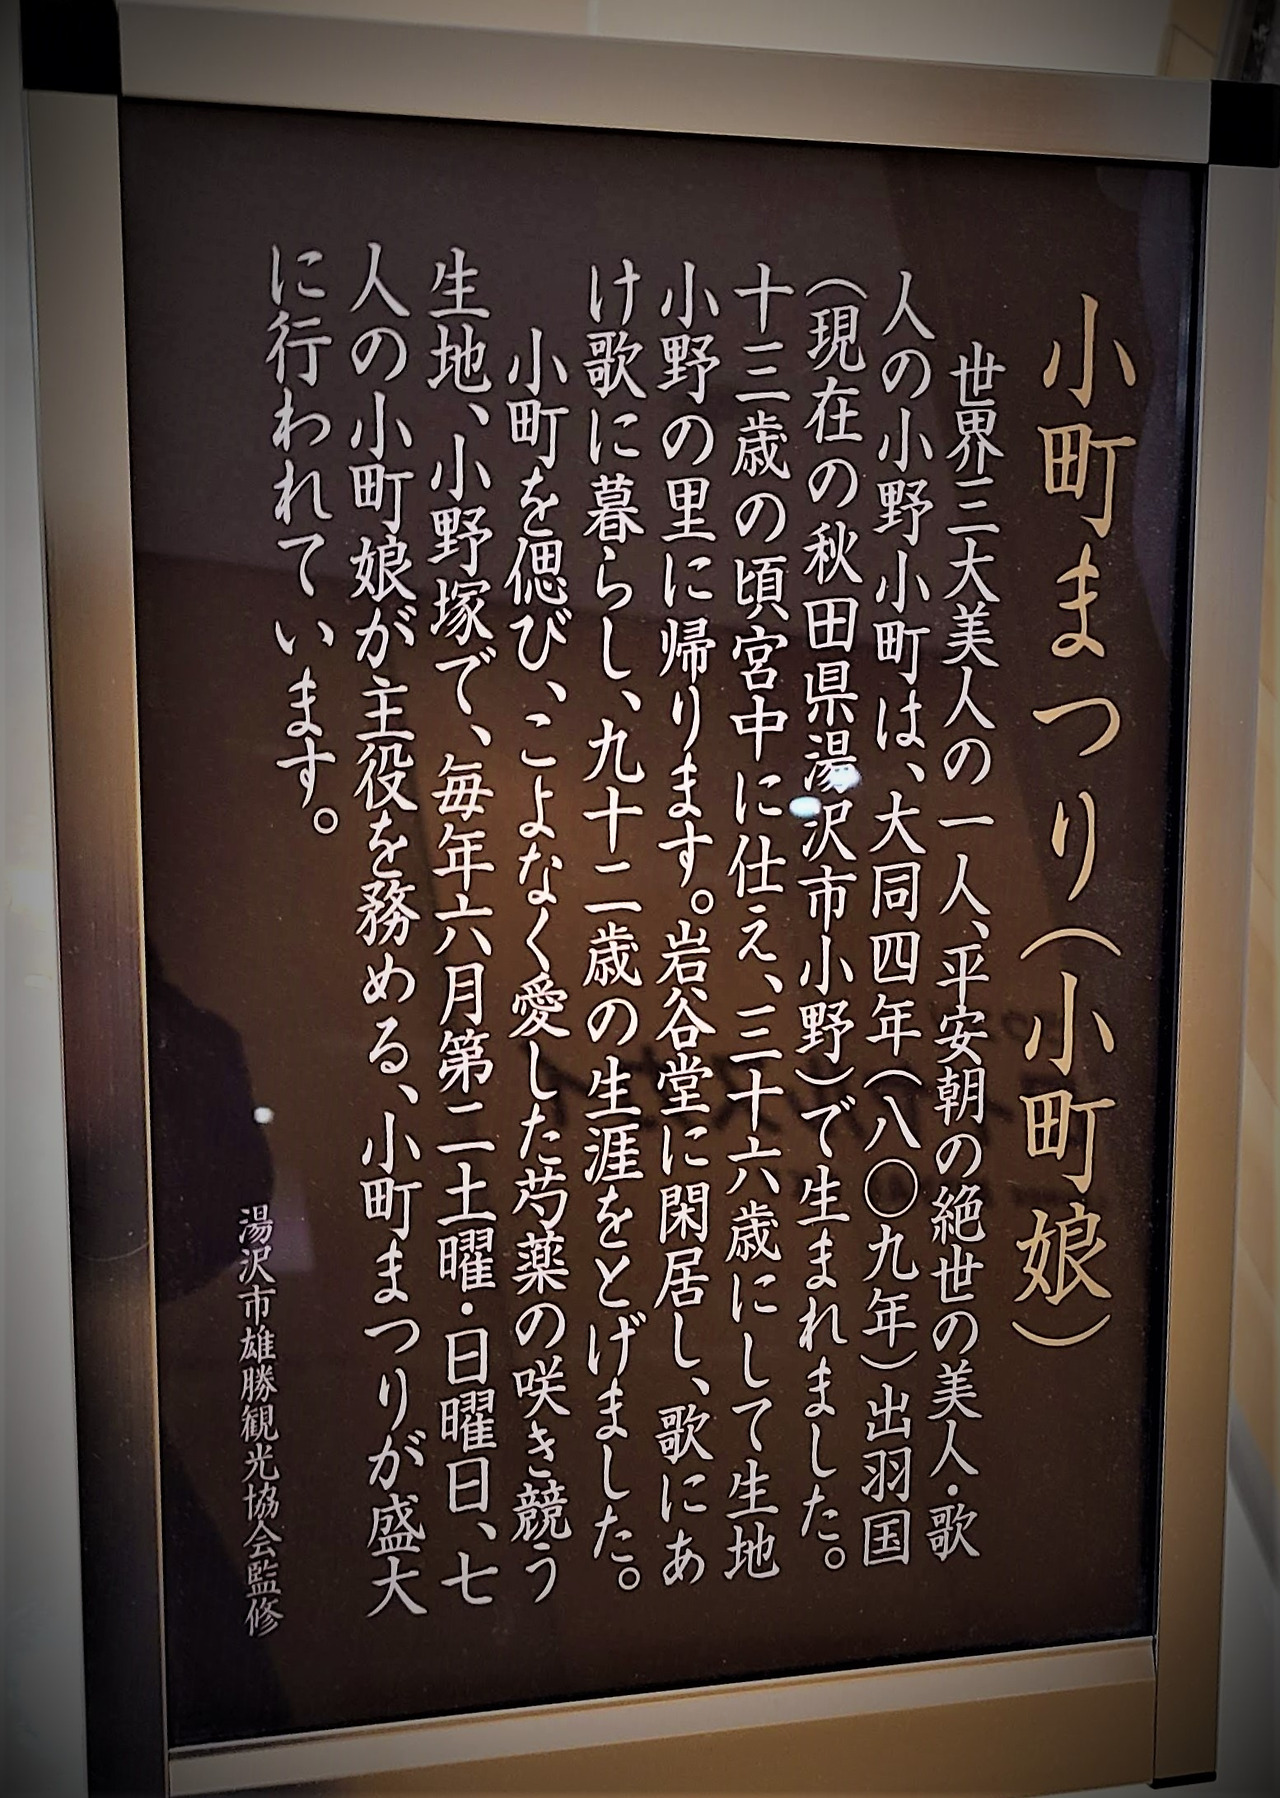 小町まつり(小町娘)
世界三大美人の一人、平安朝の絶世の美人・歌
人の小野小町は、大同四年(八〇九年)出羽国
(現在の秋田県湯沢市小野)で生まれました。
十三歳の頃宮中に仕え、三十六歳にして生地
小野の里に帰ります。岩谷堂に閑居し、歌にあ
け歌に暮らし、九十二歳の生涯をとげました。
小町を偲び、こよなく愛した芍薬の咲き競う
生地、小野塚で、毎年六月第二土曜・日曜日、七
人の小町娘が主役を務める、小町まつりが盛大
に行われています。
湯沢市雄勝観光協会監修